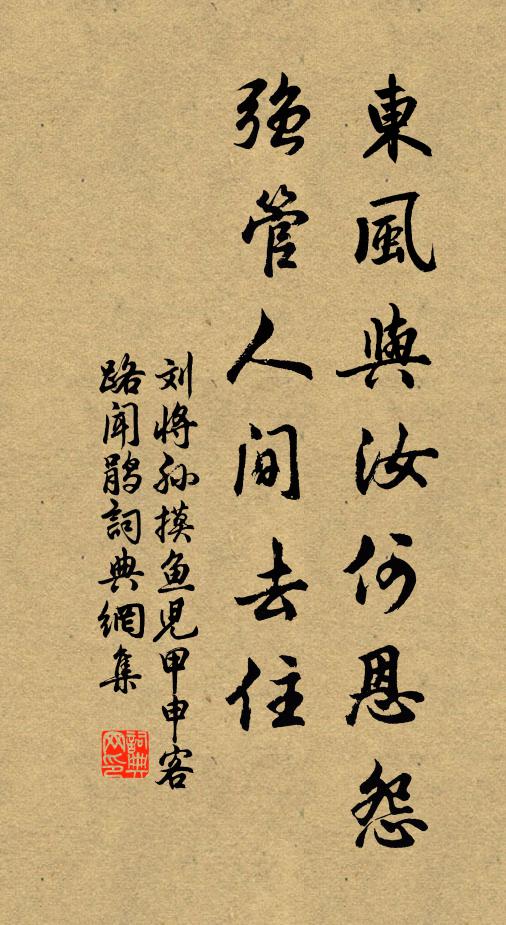 東風與汝何恩怨
強管人間去住
刘將孙摸鱼児甲申客
路闻鹃詞典網集
詞典网印